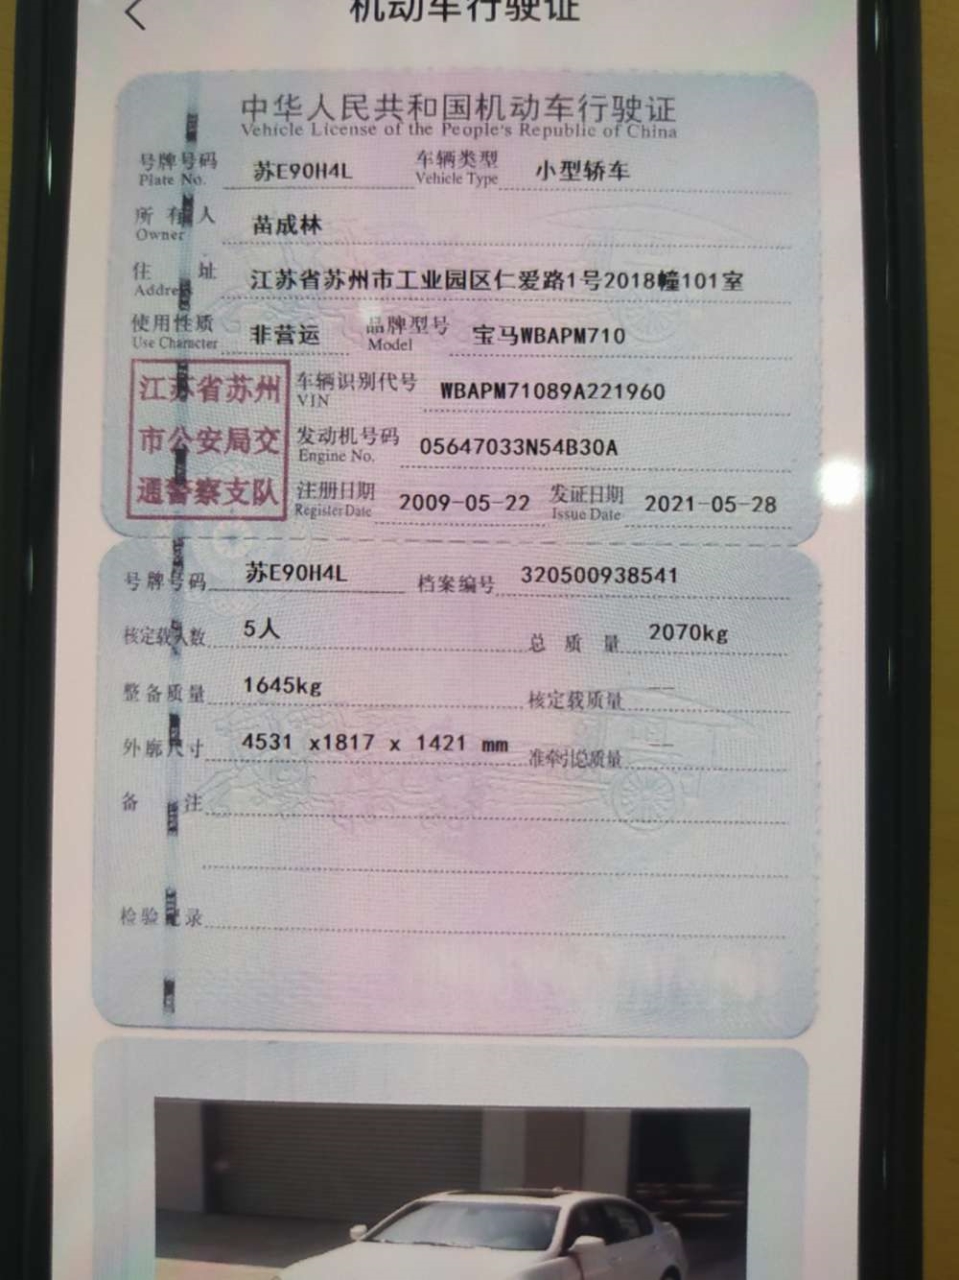 机动车行驶证
中华人民共和国机动车行驶证
Vehicle License of the People's Republic of China
号牌号码 苏E90H4L 车辆类型 小型轿车
Plate No. Vehicle Type
所有人 苗成林
Owner
住址 江苏省苏州市工业园区仁爱路1号2018幢101室
Address
使用性质 非营运 品牌型号 宝马WBAPM710
Use Character Model
江苏省苏州
市公安局交
通警察支队
车辆识别代号 WBAPM71089A221960
VIN
发动机号码 05647033N54B30A
Engine No.
注册日期 2009-05-22 发证日期 2021-05-28
Register Date Issue Date
号牌号码 苏E90H4L 档案编号 320500938541
核定载人数 5人 总质量 2070kg
整备质量 1645kg 核定载质量 ——
外廓尺寸 4531 x1817 x 1421 mm 准牵引总质量 ——
备注
检验记录